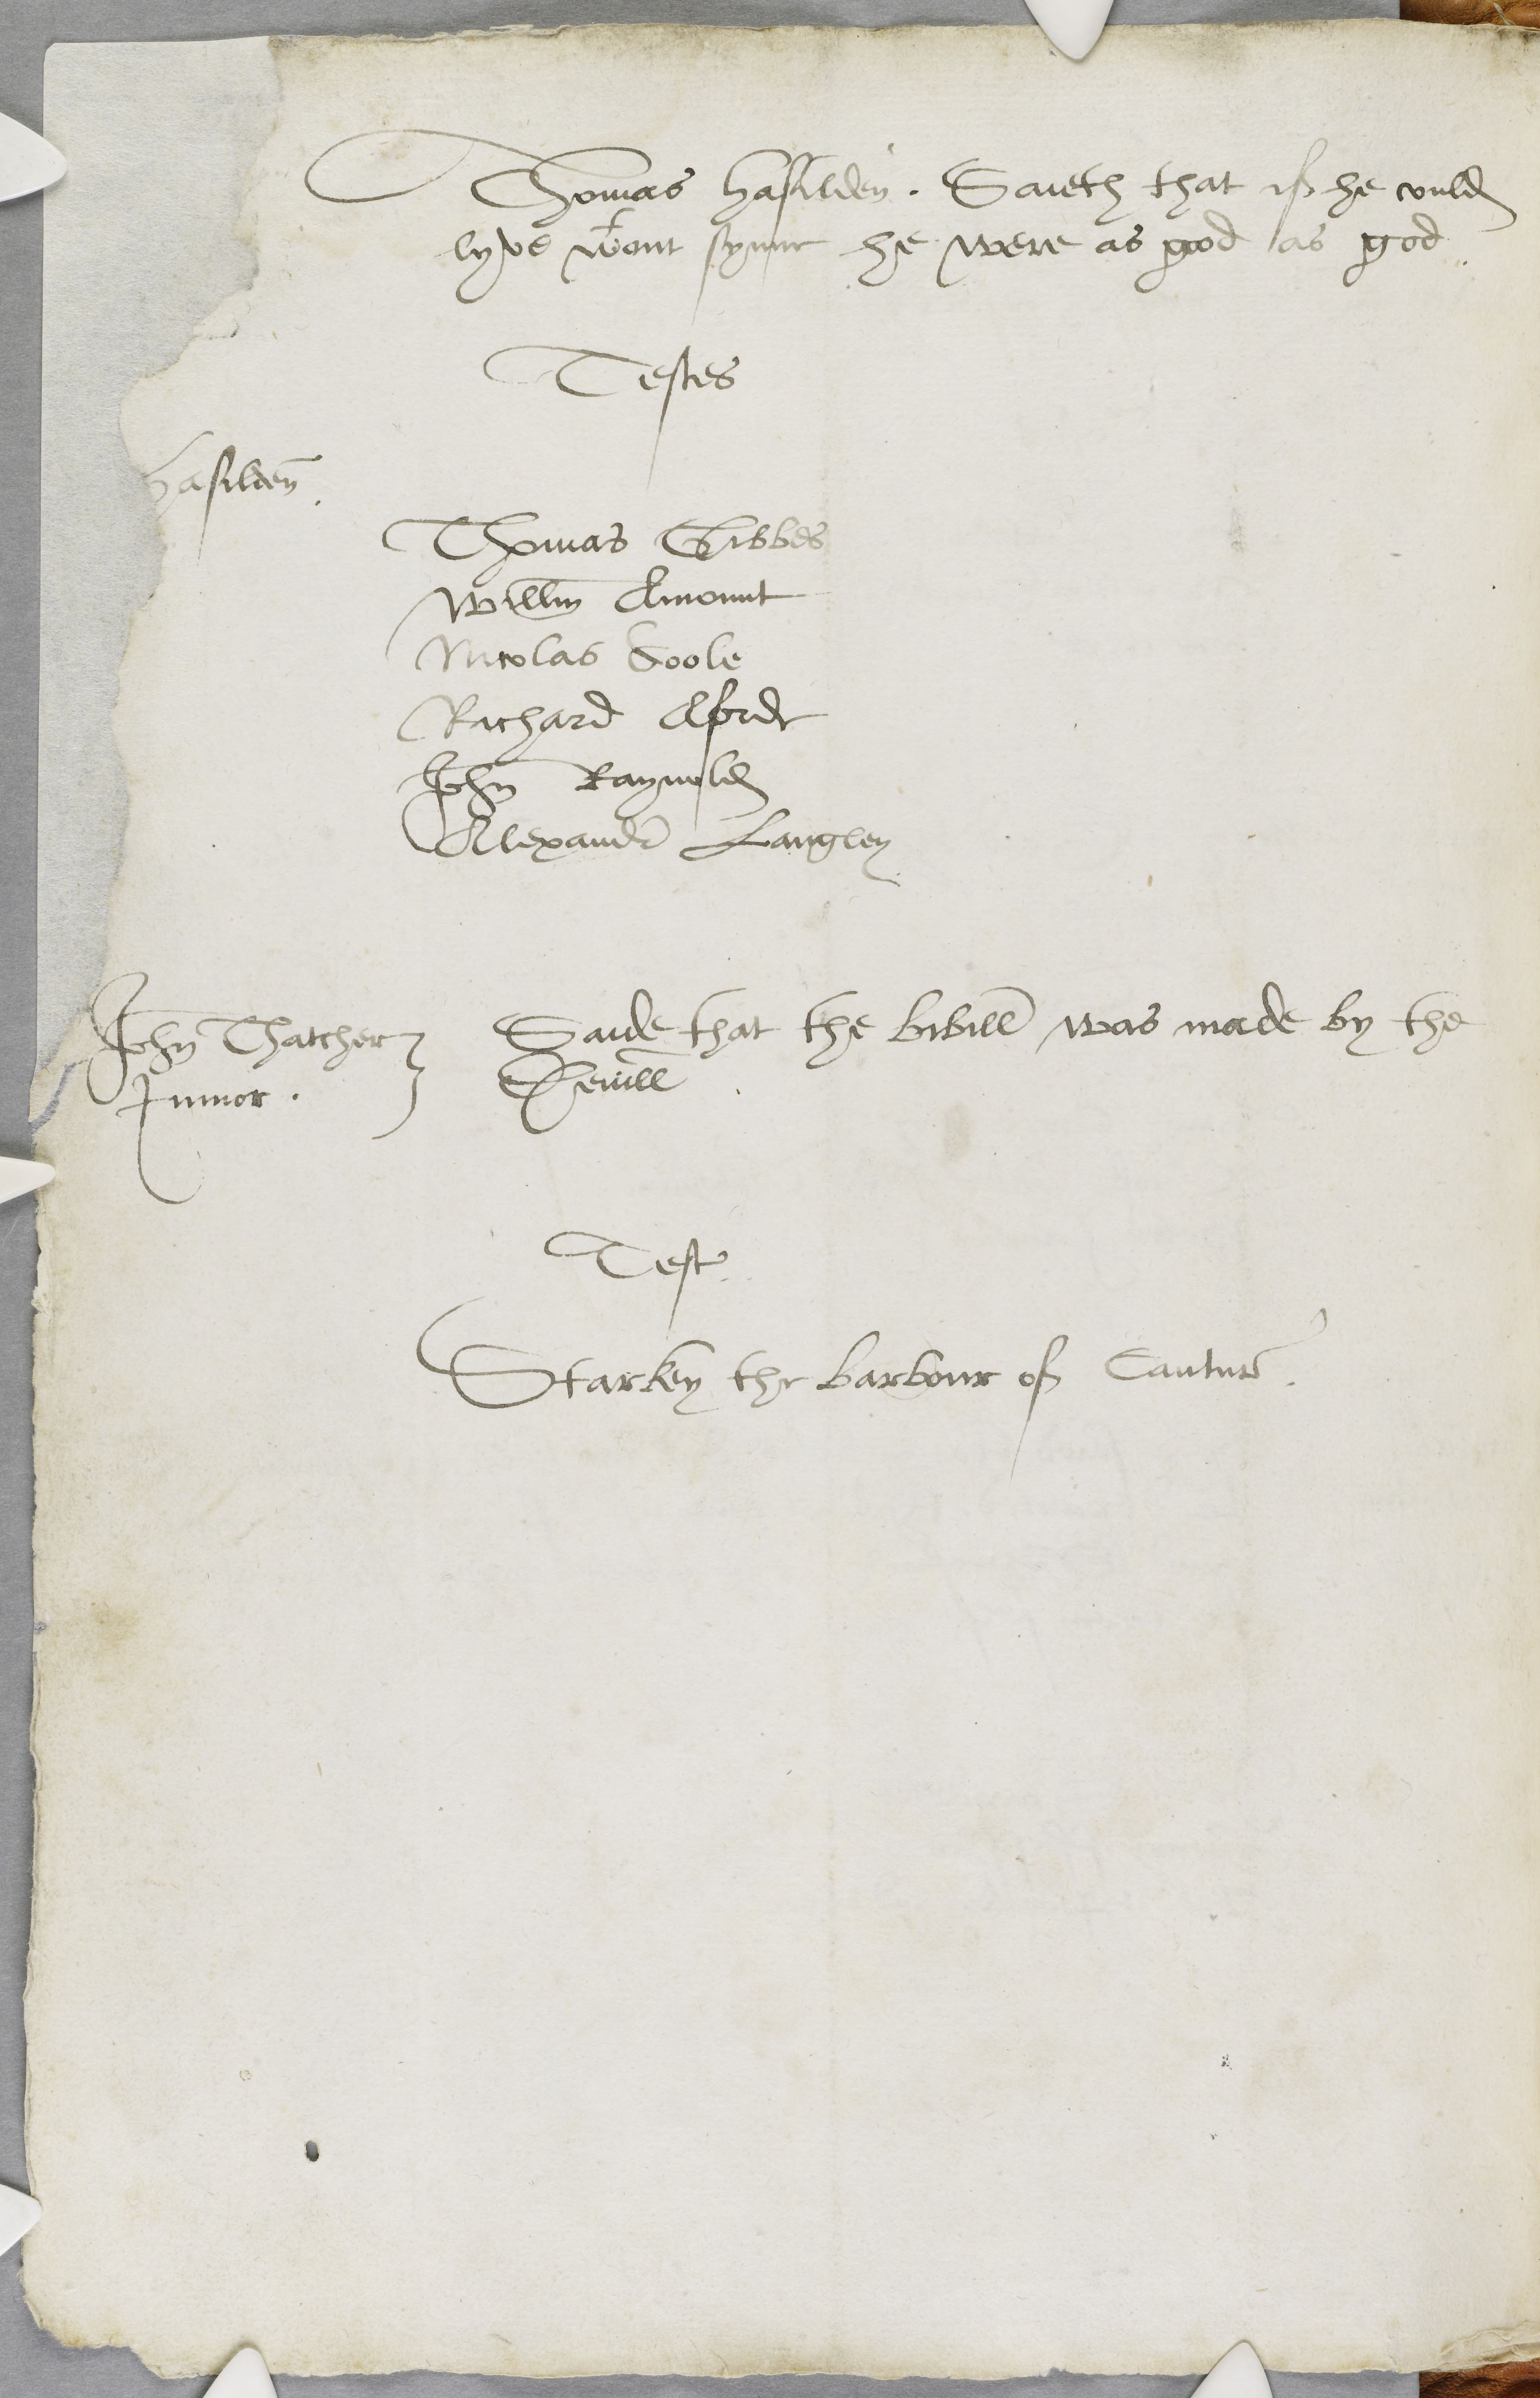 Thomas hasilden. Saieth that if he could
lyve wtout synne he were as god as god.
Testes
hasilden.
Thomas Gibbes
Willm Amount
Nicolas Coole
Richard Aforde
John Raynold
Alexandr Langley
John Thatcher
Junior.
Saide that the bibill was made by the
Devill.
Test
Starkey the barbour of Cantur.